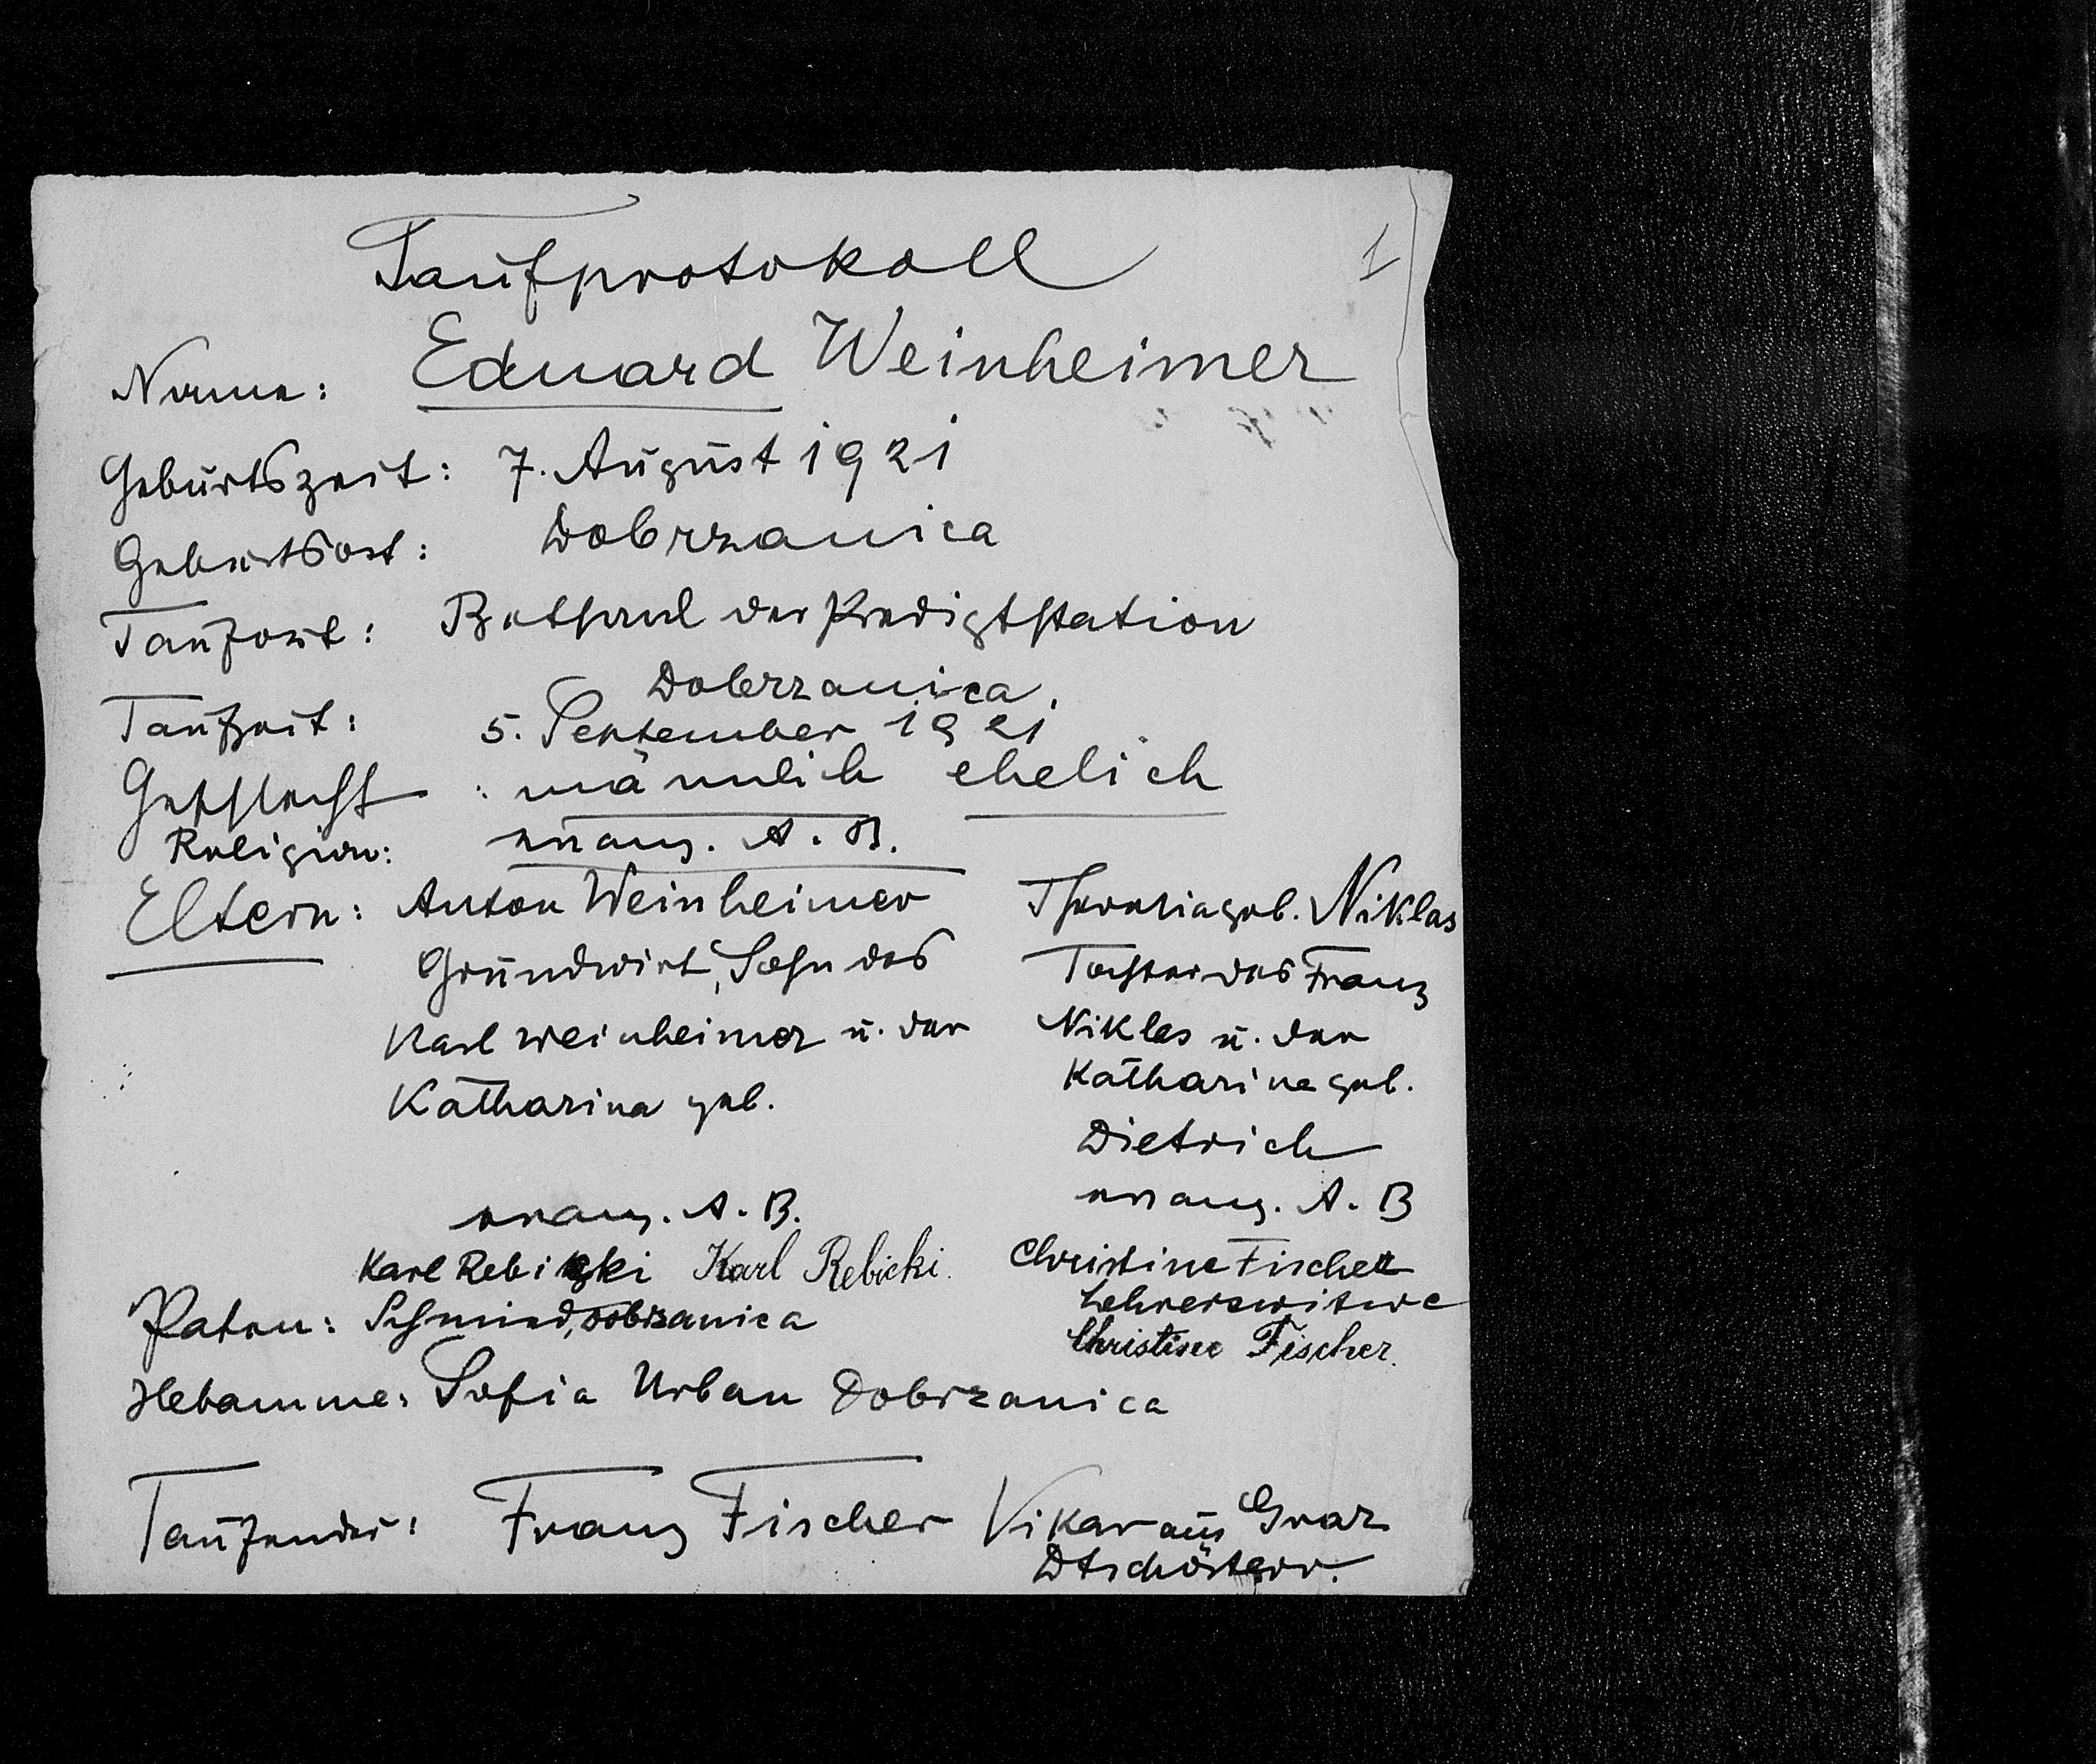 Taufprotokoll
1
Name: Eduard Weinheimer
Geburtszeit: 7. August 1921
Geburtsort: Dobrzanica
Taufort: Betsaal der Predigtstation
Dobrzanica.
Taufzeit: 5. September 1921
Geschlecht: männlich ehelich
Religion: evang. A. B.
Eltern: Anton Weinheimer Theresia geb. Niklas
Grundwirt, Sohn des Tochter des Franz
Karl Weinheimer u. der Niklas u. der
Katharina geb. Katharina geb.
Dietrich
evang. A. B. evang. A. B
Karl Rebizki Karl Rebicki. Christine Fischer
Paten: Schmied, Dobrzanica Lehrerswitwe
Christine Fischer.
Hebamme: Sofia Urban Dobrzanica
Taufender: Franz Fischer Vikar aus Graz
Dtschösterr.